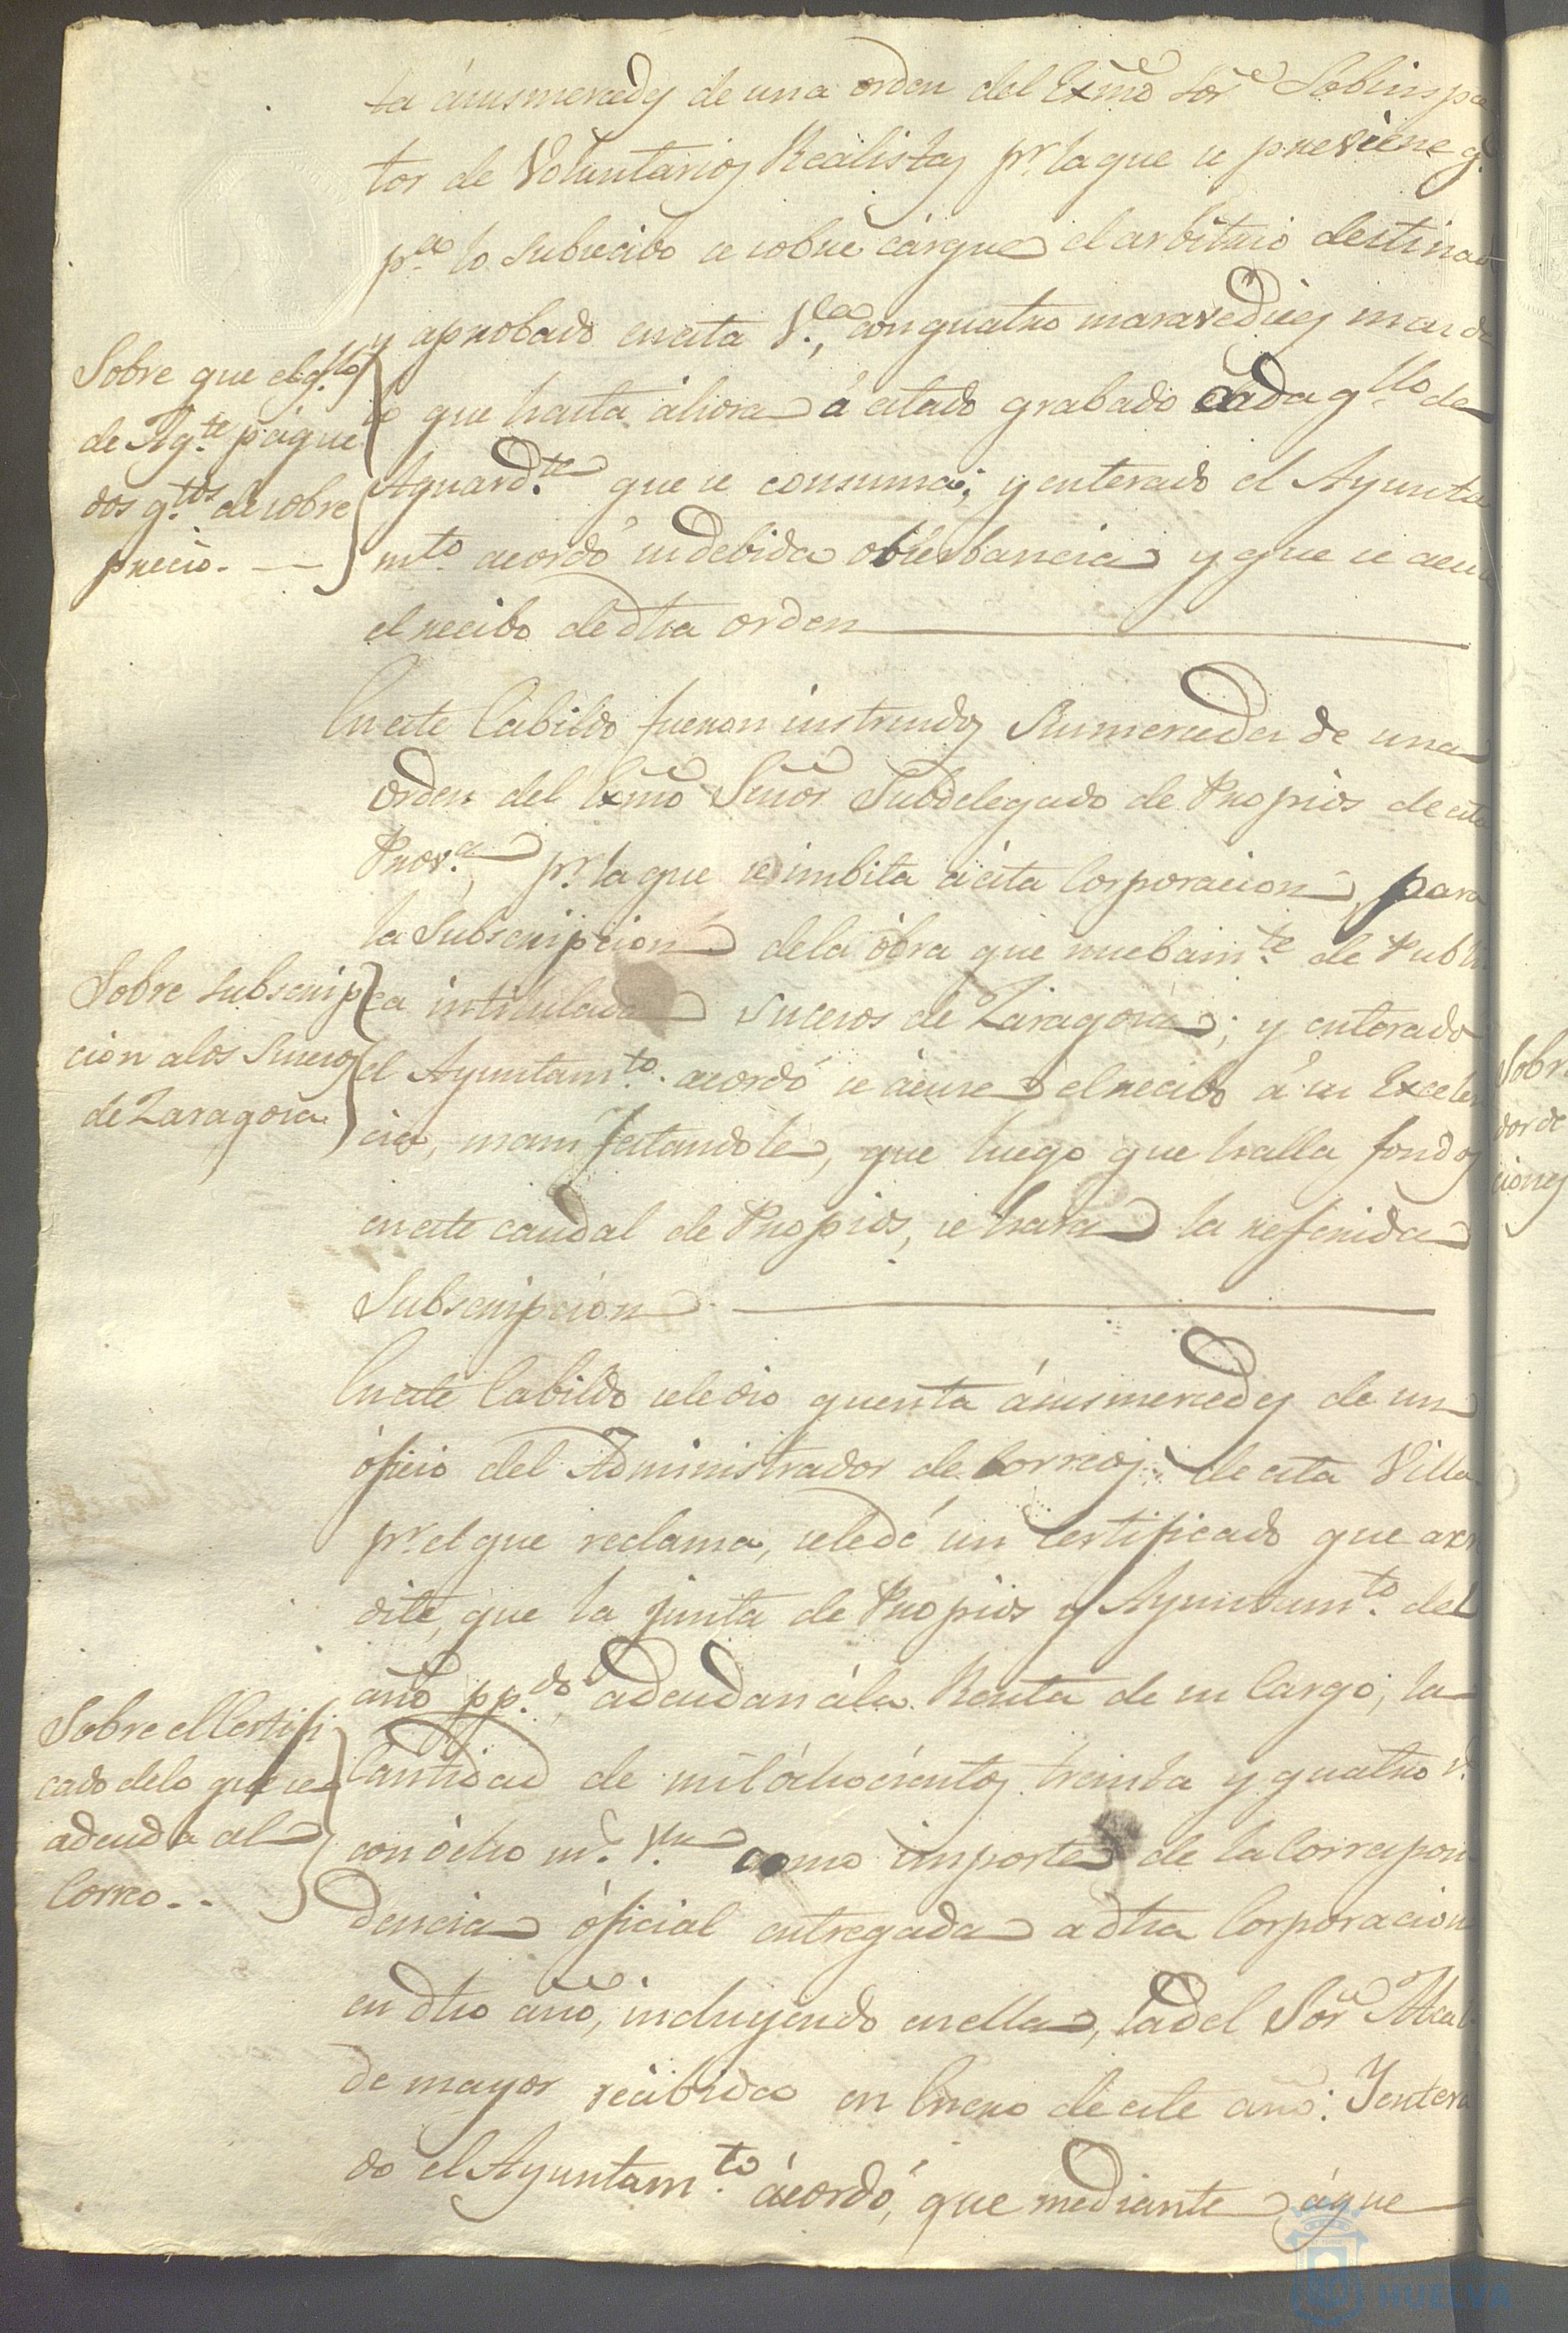 ta ásusmercedes de una orden del Exmô Sor Sobinspe
tor de Voluntarios Realistas pr. la que se previene q.e
p.a lo subcecibo se sobre cárgue el arbitrio destinad
y aprobado en esta V.a, con quatro maravedises mas de
lo que hasta áhora á estado grabado cada q.llo de
Aguard.te que se consuma; y enterado el Ayunta
m.to acordó su debida obserbancia y que se acuse
el recibo de dha orden
Sobre que el q.llo
de Ag.te págue
dos q.tos de sobre
precio. —
En este Cabildo fueron instruidos Sus mercedes de una
Orden del Exmô Señor Subdelegado de Propios de esta
Prov.a, pr. la que se imbita á esta Corporacion, para
la Subscripcion de la óbra que nuebam.te se Publi
ca intitulada Sucesos de Zaragoza; y enterado
el Ayuntam.to acordó se ácuse el recibo á su Excelen
cia, manifestandole, que luego que halla fondos
en este caudal de Propios, se hará la referida
Subscripcion
Sobre subscrip
cion a los Sucesos
de Zaragoza
En este Cabildo se le dio quenta ásusmercedes de un
óficio del Administrador de Correos de esta Villa
pr. el que reclama, se le dé un Certificado que acre
dite, que la junta de Propios y Ayuntam.to del
año pp.do, adeudan á la Renta de su Cargo, la
Cantidad de mil óchocientos treinta y quatro r.s
con ócho m.s V.n como importe de la Correspon
dencia óficial entregada a dha Corporacion
en dho año, incluyendo en ella, la del Sor Alcal
de mayor recibida en Enero de este año: Y entera
do el Ayuntam.to ácordó, que mediante áque
Sobre el Certifi
cado de lo que se
adeuda al
Correo..
Sobre
dor de
ciones
HUELVA